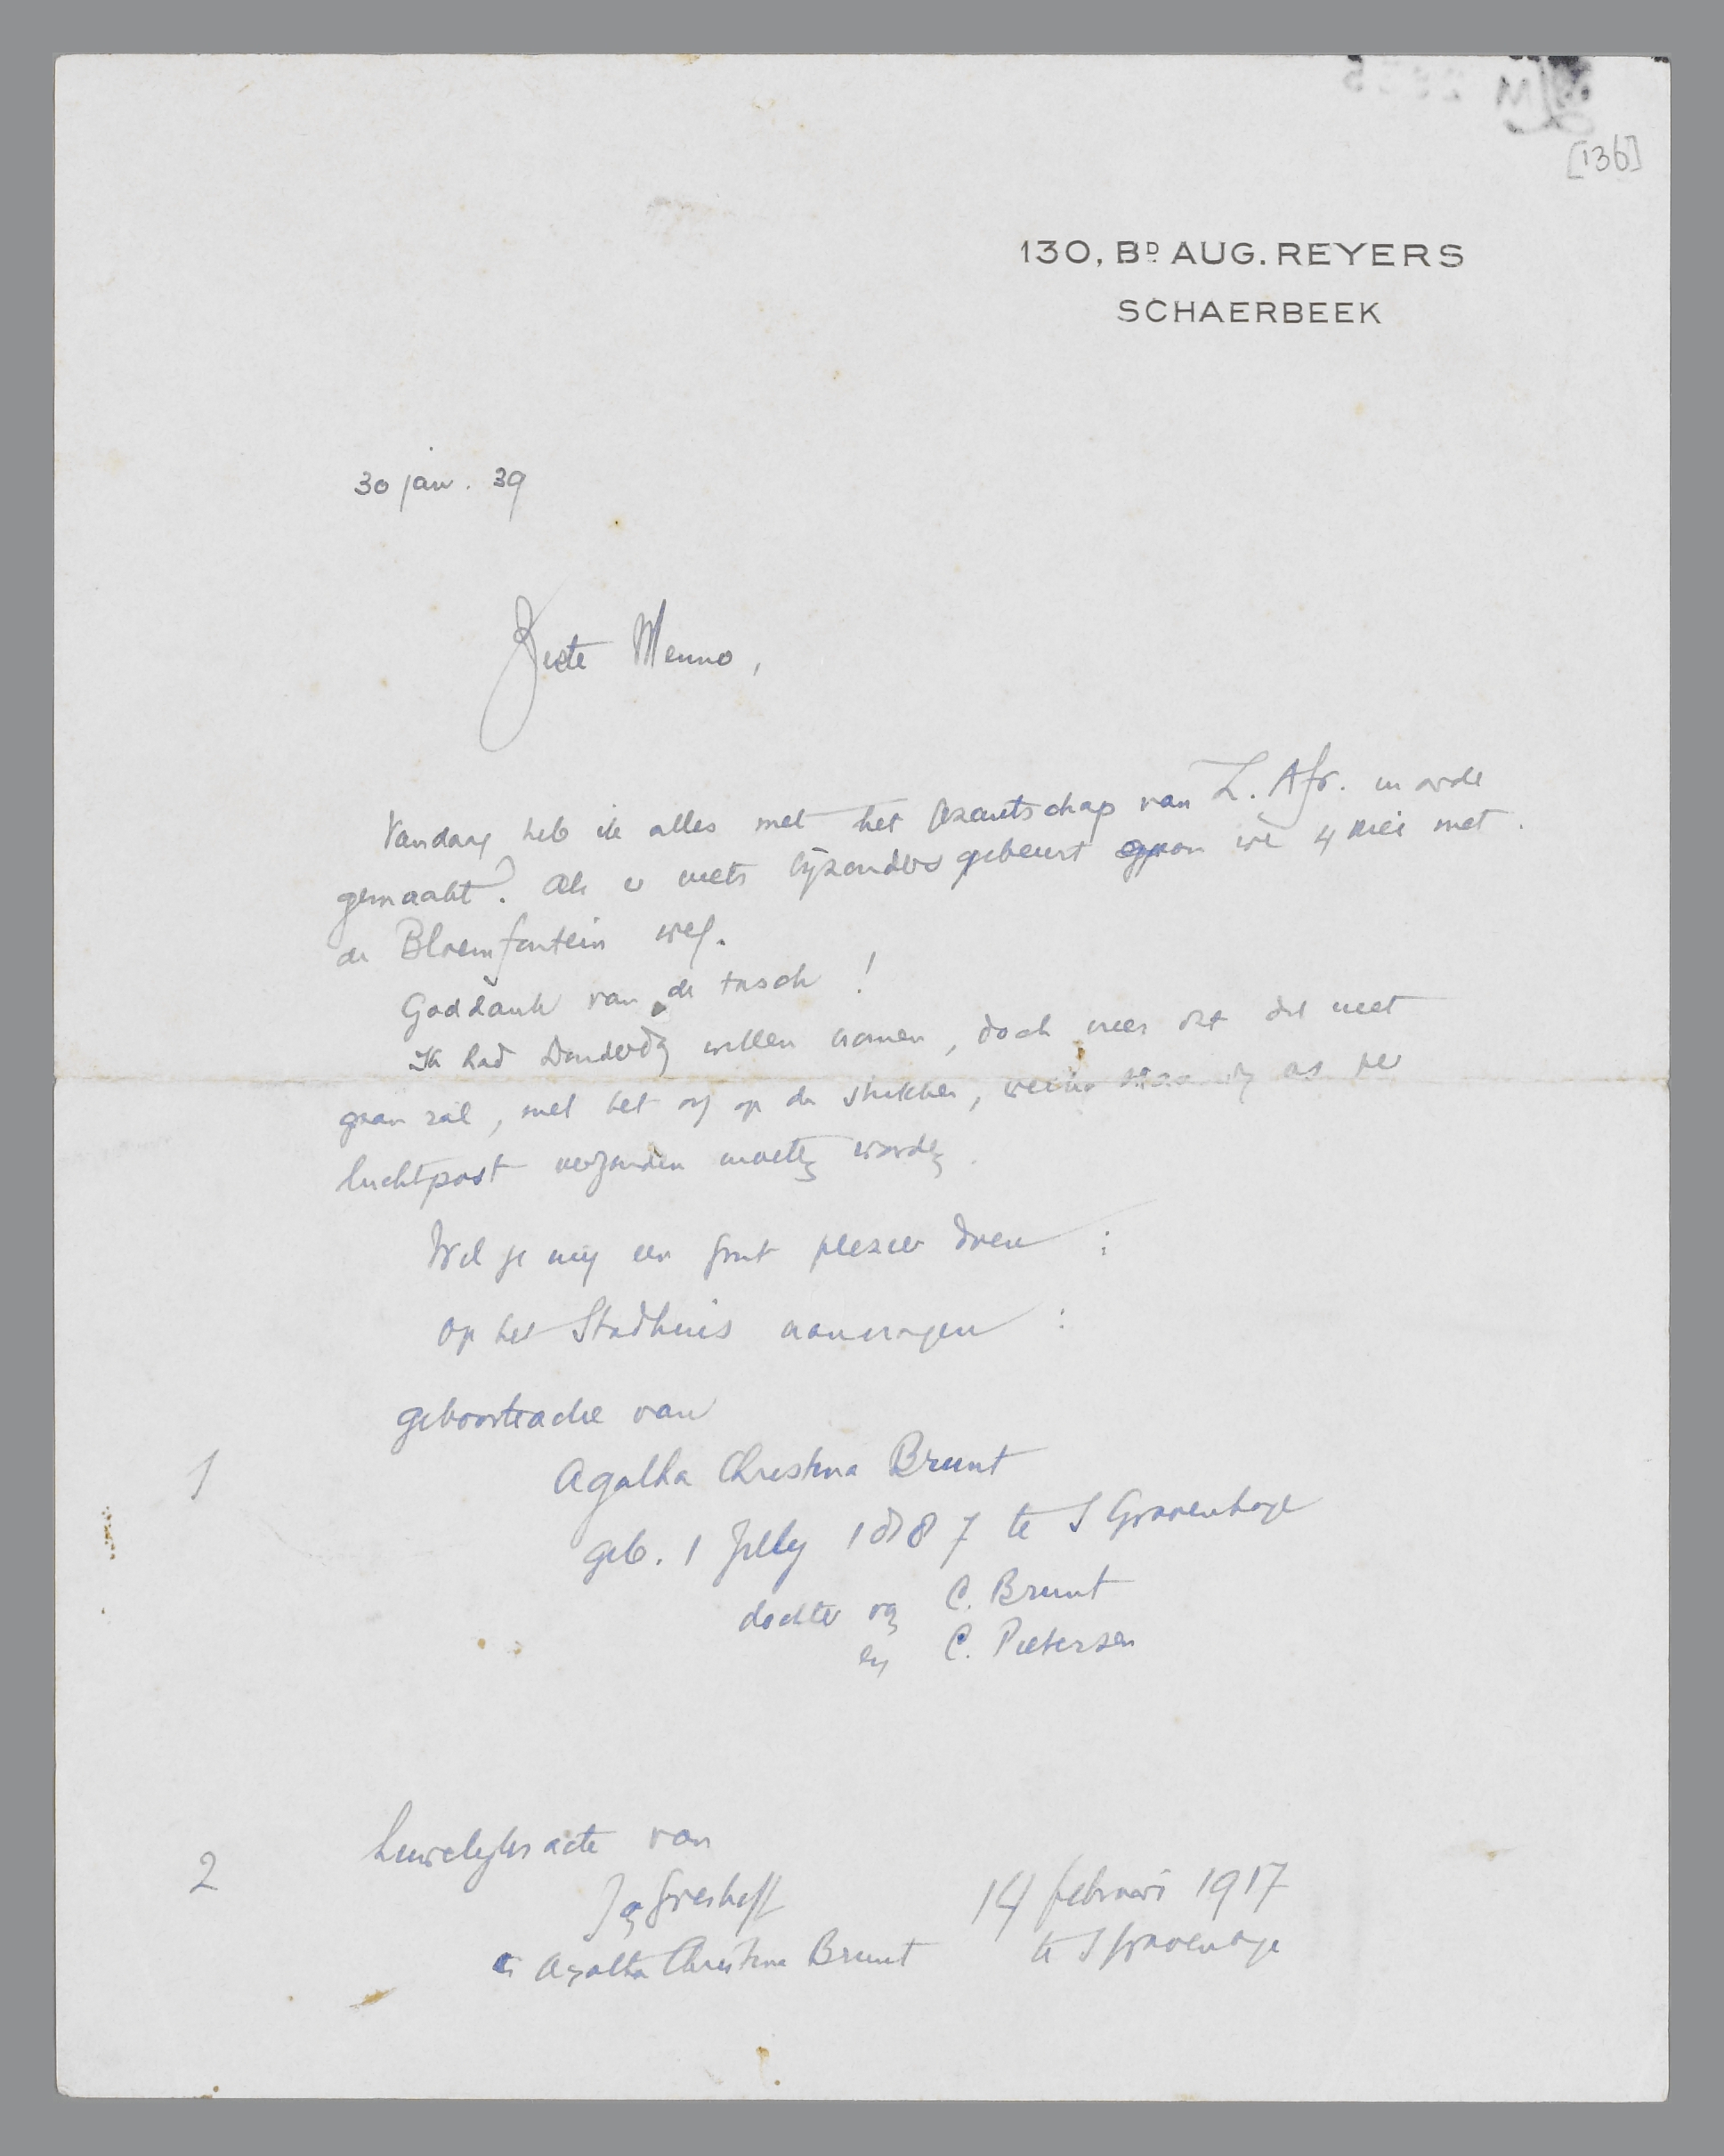 [136]
130, BD AUG. REYERS
SCHAERBEEK
30 jan. 39
Beste Menno,
Vandaag heb ik alles met het Gezantschap van Z. Afr. in orde
gemaakt. Als er niets bijzonders gebeurt gaan we 4 Mei met
de Bloemfontein weg.
Goddank van de tasch!
Ik had Donderdag willen komen, doch vrees dat dit niet
gaan zal, met het oog op de stukken, welke as per
luchtpost verzonden moeten worden.
Wil je mij een groot plezier doen:
op het Stadhuis aanvragen:
geboorteacte van
1
Agatha Christina Brunt
geb. 1 July 1887 te S Gravenhage
dochter van C. Brunt
en C. Pietersen
huwelijksacte van
2
Jan Greshoff 14 februari 1917
en Agatha Christina Brunt te S Gravenhage